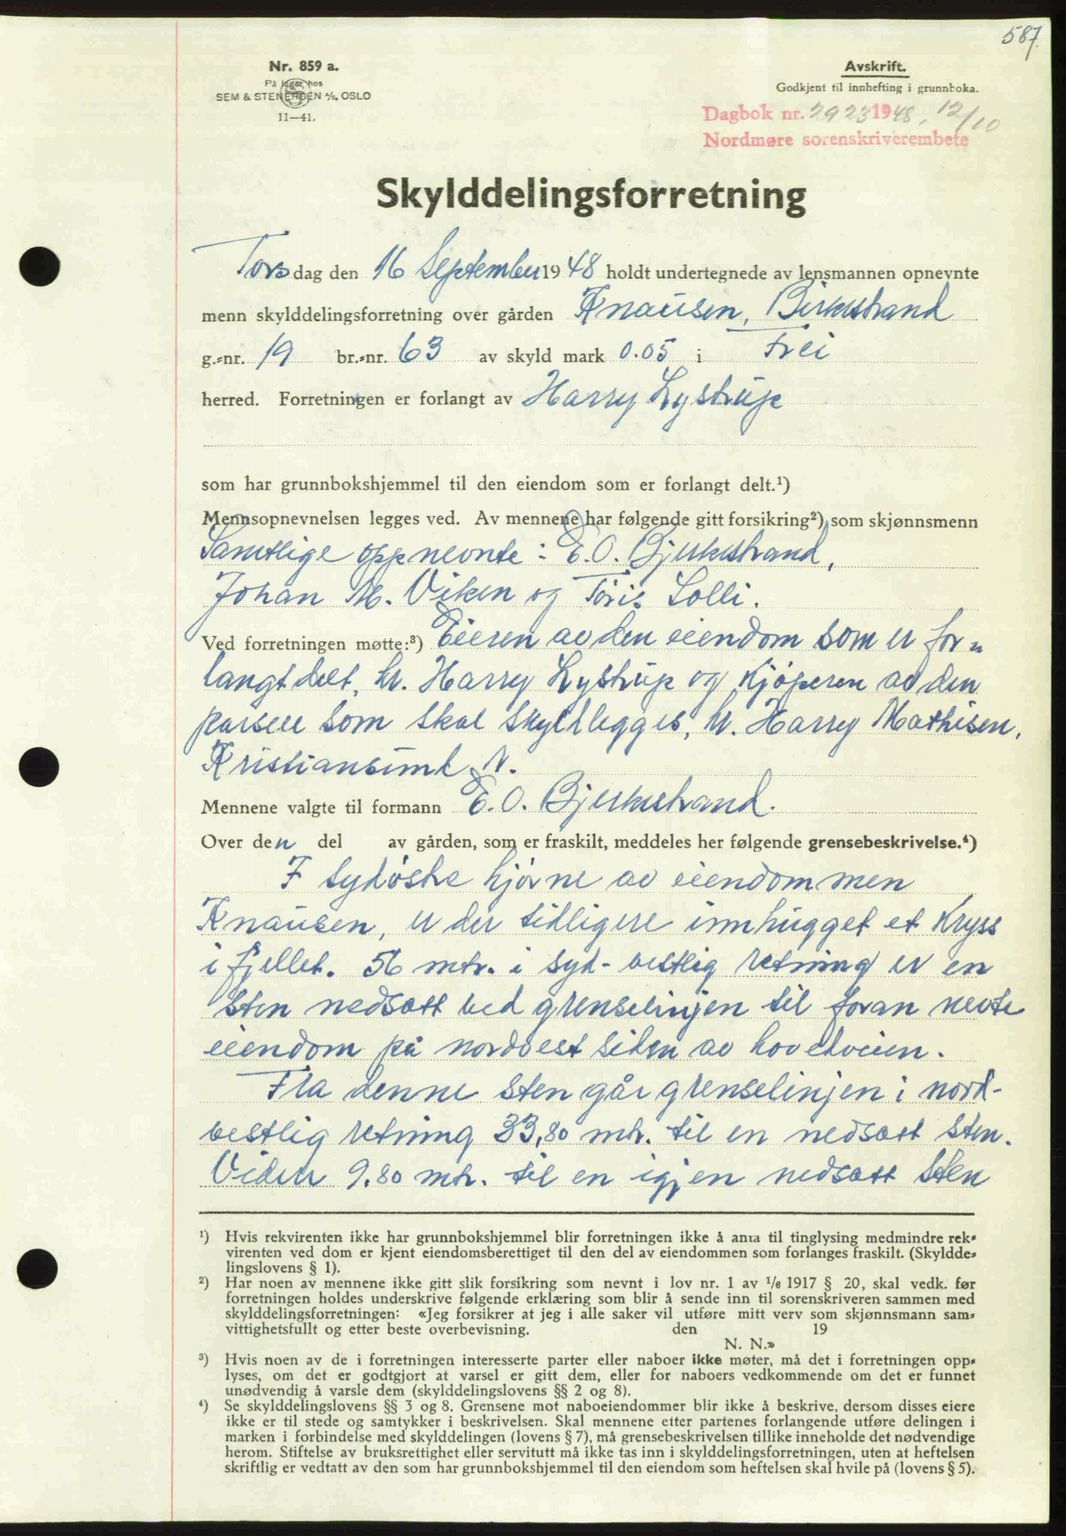 587.
Nr. 859 a.
På lager hos
SEM & STENERSEN A/S, OSLO
11—41.
Avskrift.
Godkjent til innhefting i grunnboka.
Dagbok nr. 2923 1948, 12/10
Nordmøre sorenskriverembete
Skylddelingsforretning
Torsdag den 16 September 1948 holdt undertegnede av lensmannen opnevnte
menn skylddelingsforretning over gården Knausen, Birkestrand
g.-nr. 19 br.-nr. 63 av skyld mark 0.05 i Frei
herred. Forretningen er forlangt av Harry Lystrup
som har grunnbokshjemmel til den eiendom som er forlangt delt.¹)
Mennsopnevnelsen legges ved. Av mennene har følgende gitt forsikring²) som skjønnsmenn
Samtlige oppnevnte: E. O. Bjerkestrand,
Johan M. Viken og Toris Solli.
Ved forretningen møtte:³) Eieren av den eiendom som er for=
langt delt, hr. Harry Lystrup og kjøperen av den
parsell som skal skyldlegges, hr. Harry Mathisen,
Kristiansund N.
Mennene valgte til formann E. O. Bjerkestrand.
Over den del av gården, som er fraskilt, meddeles her følgende grensebeskrivelse.⁴)
I sydøstre hjørne av eiendommen
Knausen, er der tidligere innhugget et kryss
i fjellet. 56 mtr. i syd-vestlig retning er en
sten nedsatt ved grenselinjen til foran nevte
eiendom på nordvest siden av hovedveien.
Fra denne sten går grenselinjen i nord-
vestlig retning 33,80 mtr. til en nedsatt sten.
Vider 9.80 mtr. til en igjen nedsatt sten
¹) Hvis rekvirenten ikke har grunnbokshjemmel blir forretningen ikke å anta til tinglysing medmindre rek-
virenten ved dom er kjent eiendomsberettiget til den del av eiendommen som forlanges fraskilt. (Skyldde-
lingslovens § 1).
²) Har noen av mennene ikke gitt slik forsikring som nevnt i lov nr. 1 av 1/6 1917 § 20, skal vedk. før
forretningen holdes underskrive følgende erklæring som blir å sende inn til sorenskriveren sammen med
skylddelingsforretningen: «Jeg forsikrer at jeg i alle saker vil utføre mitt verv som skjønnsmann sam-
vittighetsfullt og etter beste overbevisning. den 19
N. N.»
³) Hvis noen av de i forretningen interesserte parter eller naboer ikke møter, må det i forretningen opp-
lyses, om det er godtgjort at varsel er gitt dem, eller for naboers vedkommende om det er funnet
unødvendig å varsle dem (skylddelingslovens §§ 2 og 8).
⁴) Se skylddelingslovens §§ 3 og 8. Grensene mot naboeiendommer blir ikke å beskrive, dersom disses eiere
ikke er til stede og samtykker i beskrivelsen. Skal mennene etter partenes forlangende utføre delingen i
marken i forbindelse med skylddelingen (lovens § 7), må grensebeskrivelsen tillike inneholde det nødvendige
herom. Stiftelse av bruksrettighet eller servitutt må ikke tas inn i skylddelingsforretningen, uten at heftelsen
skriftlig er vedtatt av den som har grunnbokshjemmel til den eiendom som heftelsen skal hvile på (lovens § 5).